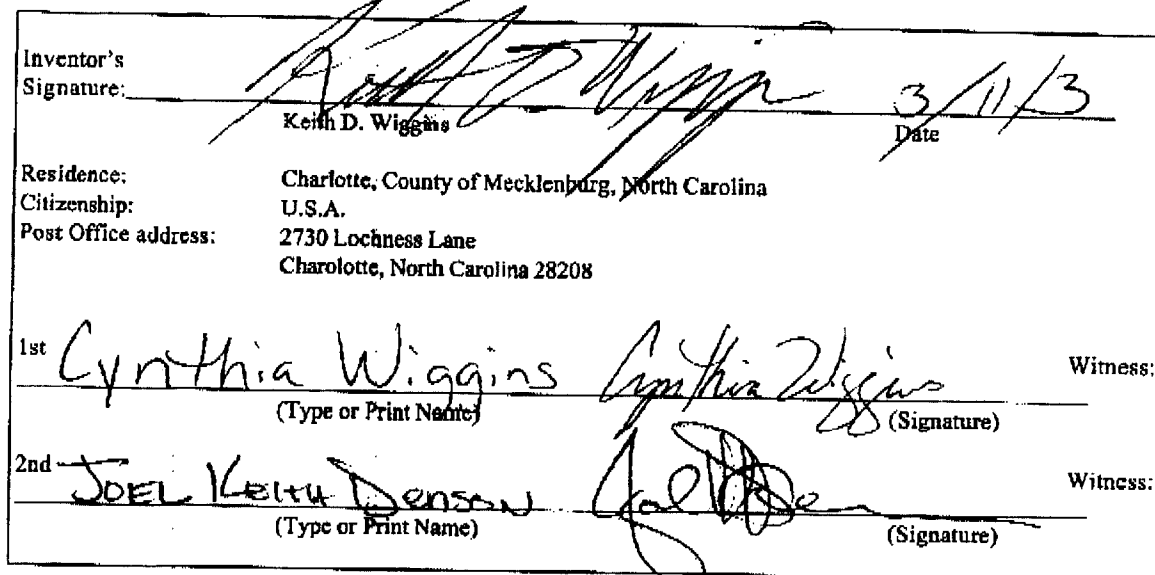 Inventor's
Signature: Keith D. Wiggins 3/11/3
Keith D. Wiggins Date
Residence: Charlotte, County of Mecklenburg, North Carolina
Citizenship: U.S.A.
Post Office address: 2730 Lochness Lane
Charolotte, North Carolina 28208
1st Cynthia Wiggins Cynthia Wiggins Witness:
(Type or Print Name) (Signature)
2nd JOEL KEITH DENSON Witness:
(Type or Print Name) (Signature)